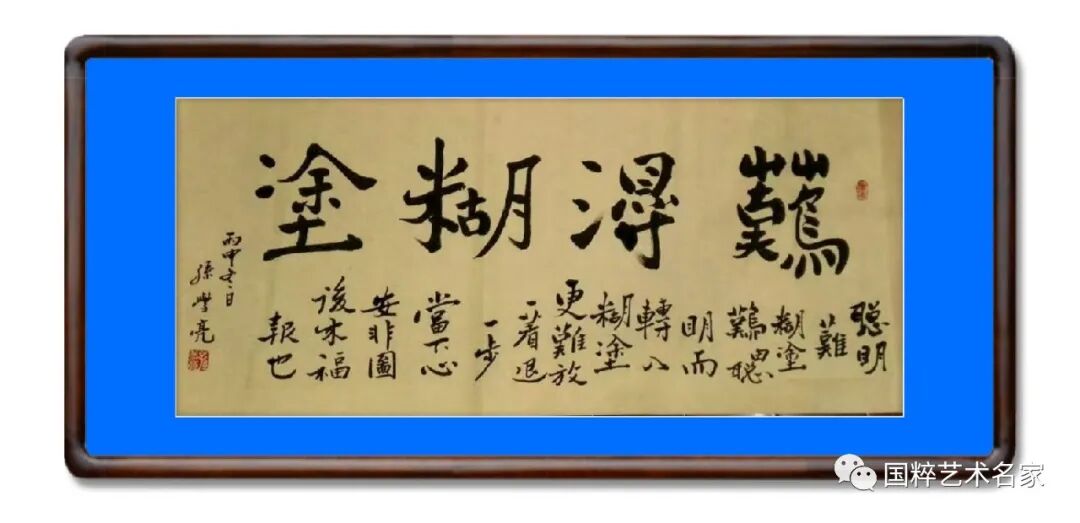 難得糊塗
聰明
難
糊塗
難由聰
明而
轉入
糊塗
更難放
一着退
一步
當下心
安非圖
後來福
報也
丙申冬日
孫學亮
国粹艺术名家